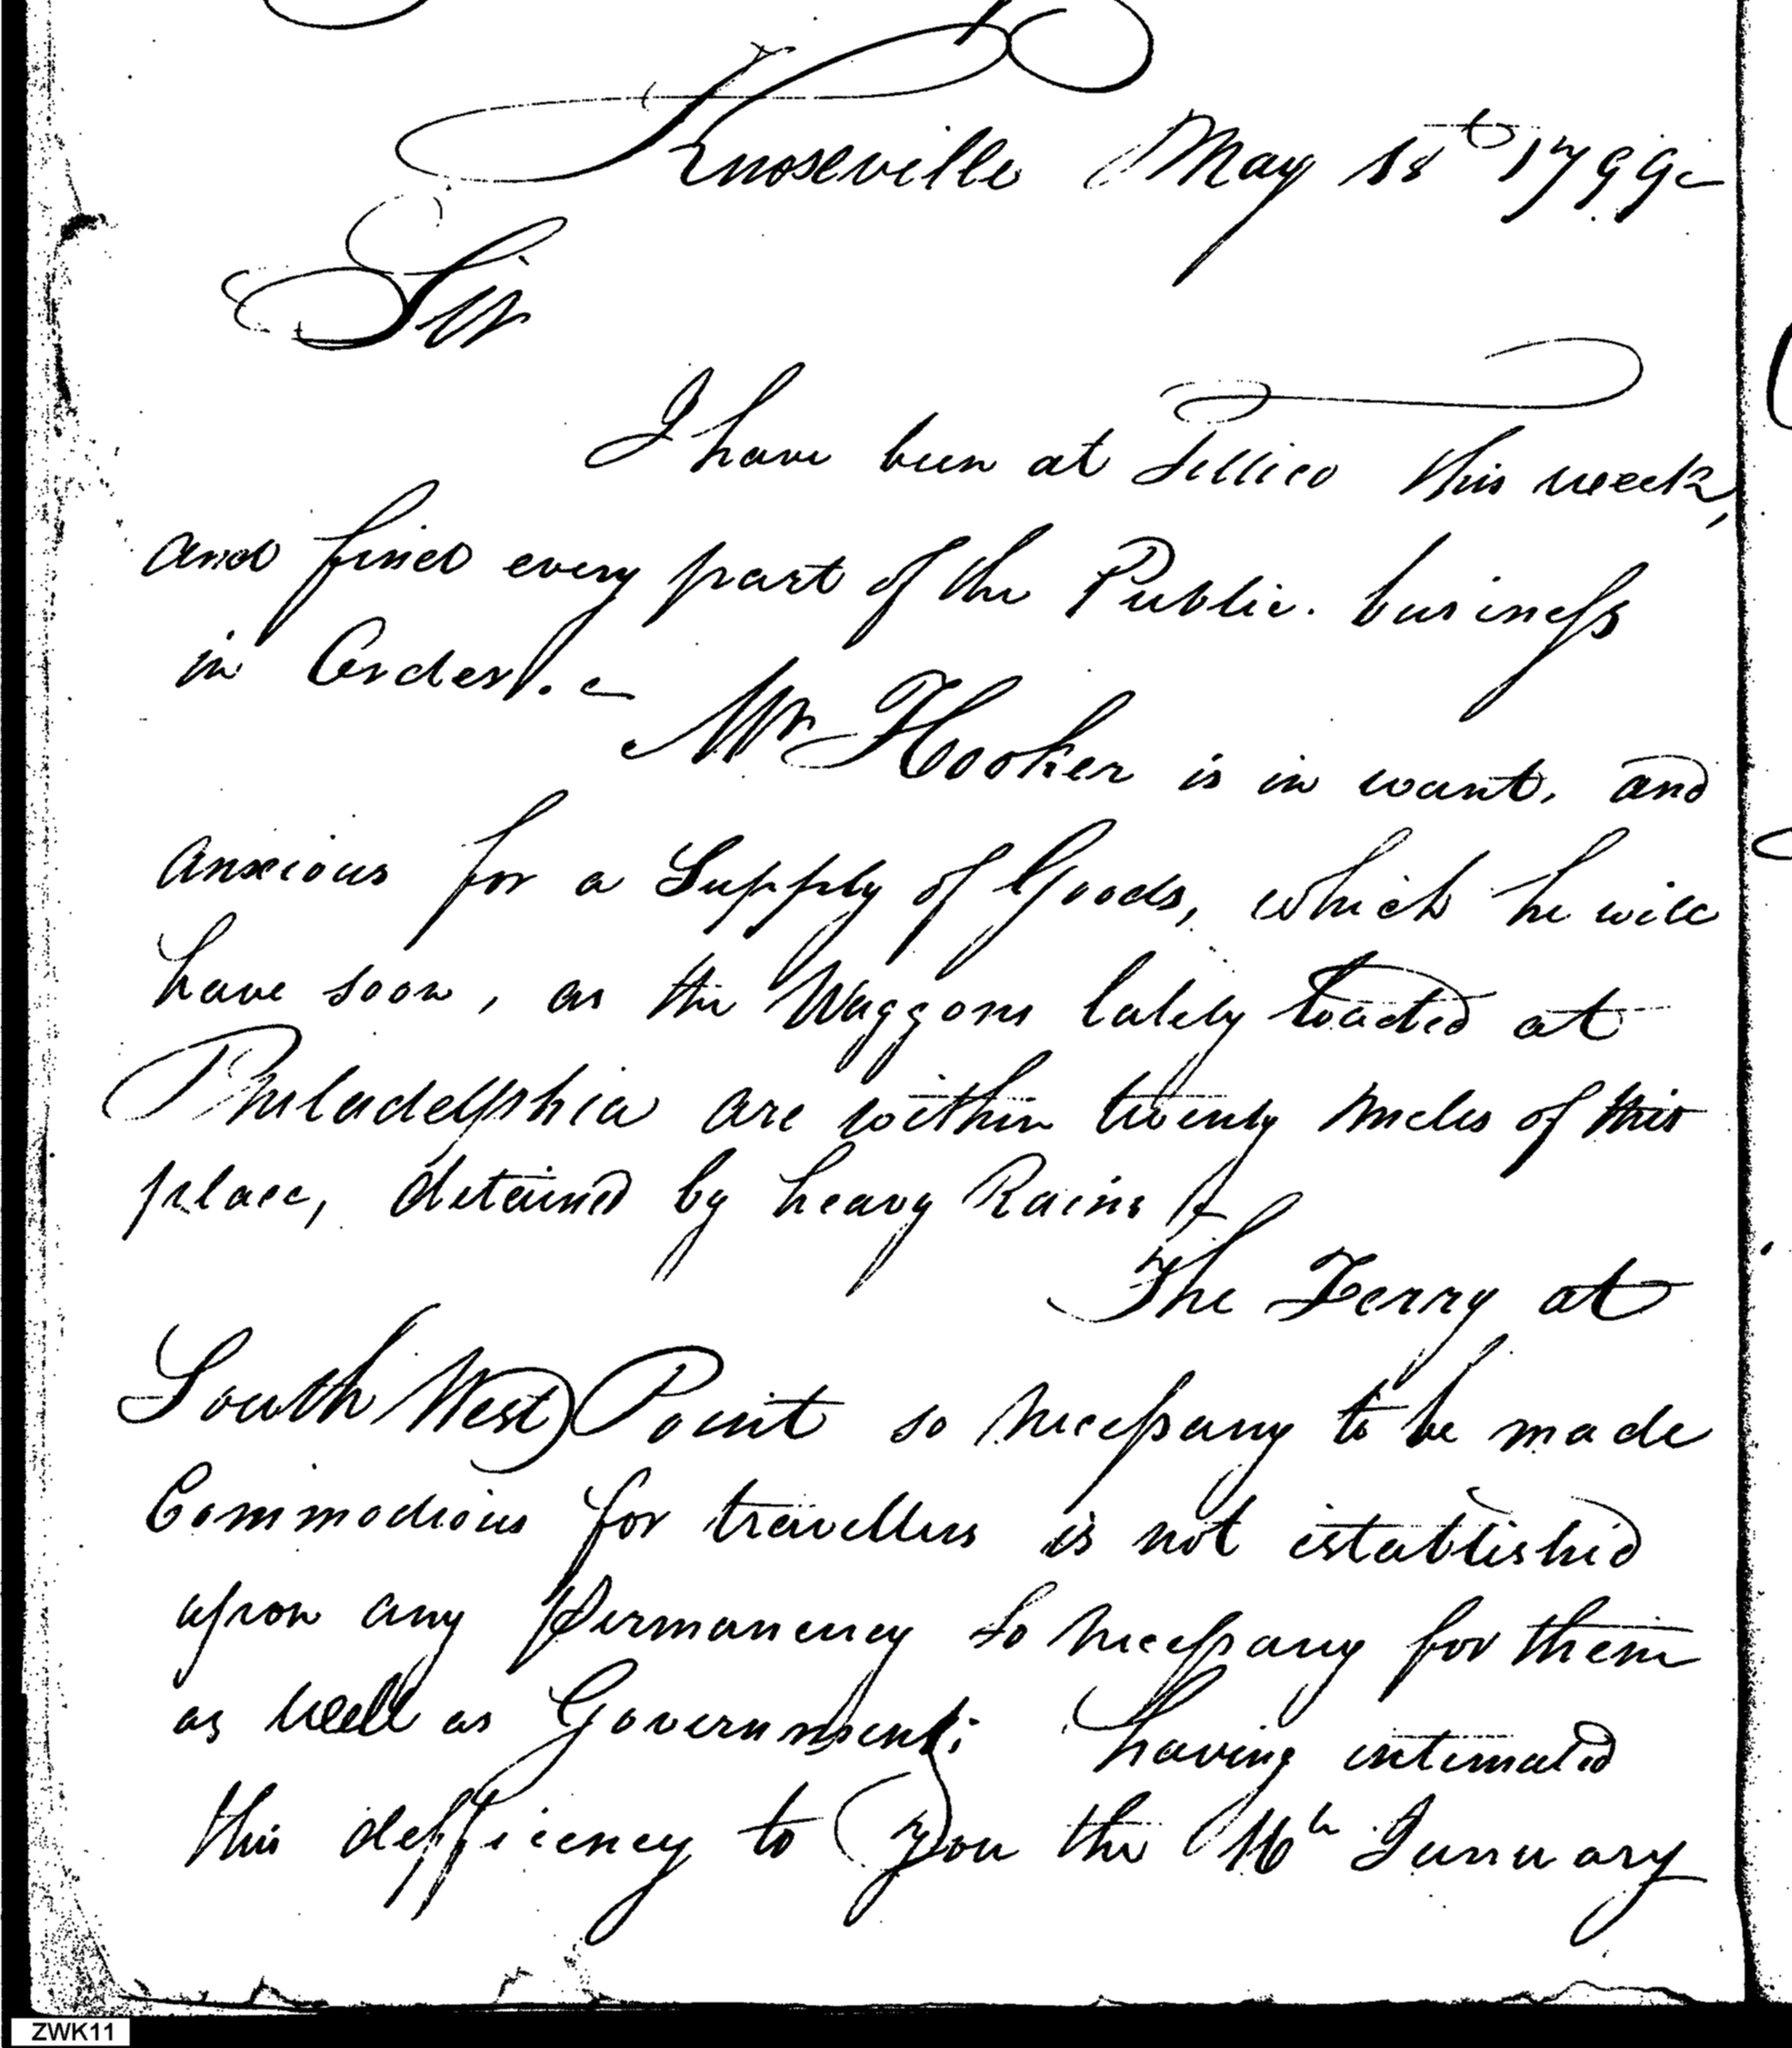 Knoxville May 18th 1799
Sir
I have been at Tellico this week,
and find every part of the Public. business
in Order. —
Mr Hooker is in want, and
anxious for a Supply of Goods, which he will
have soon, as the Waggons lately loaded at
Philadelphia are within twenty miles of this
place, detained by heavy Rains
The Ferry at
South West Point so necessary to be made
Commodious for travellers is not established
upon any permanency so necessary for them
as well as Government; having intimated
this defficiency to you the 16th January
ZWK11